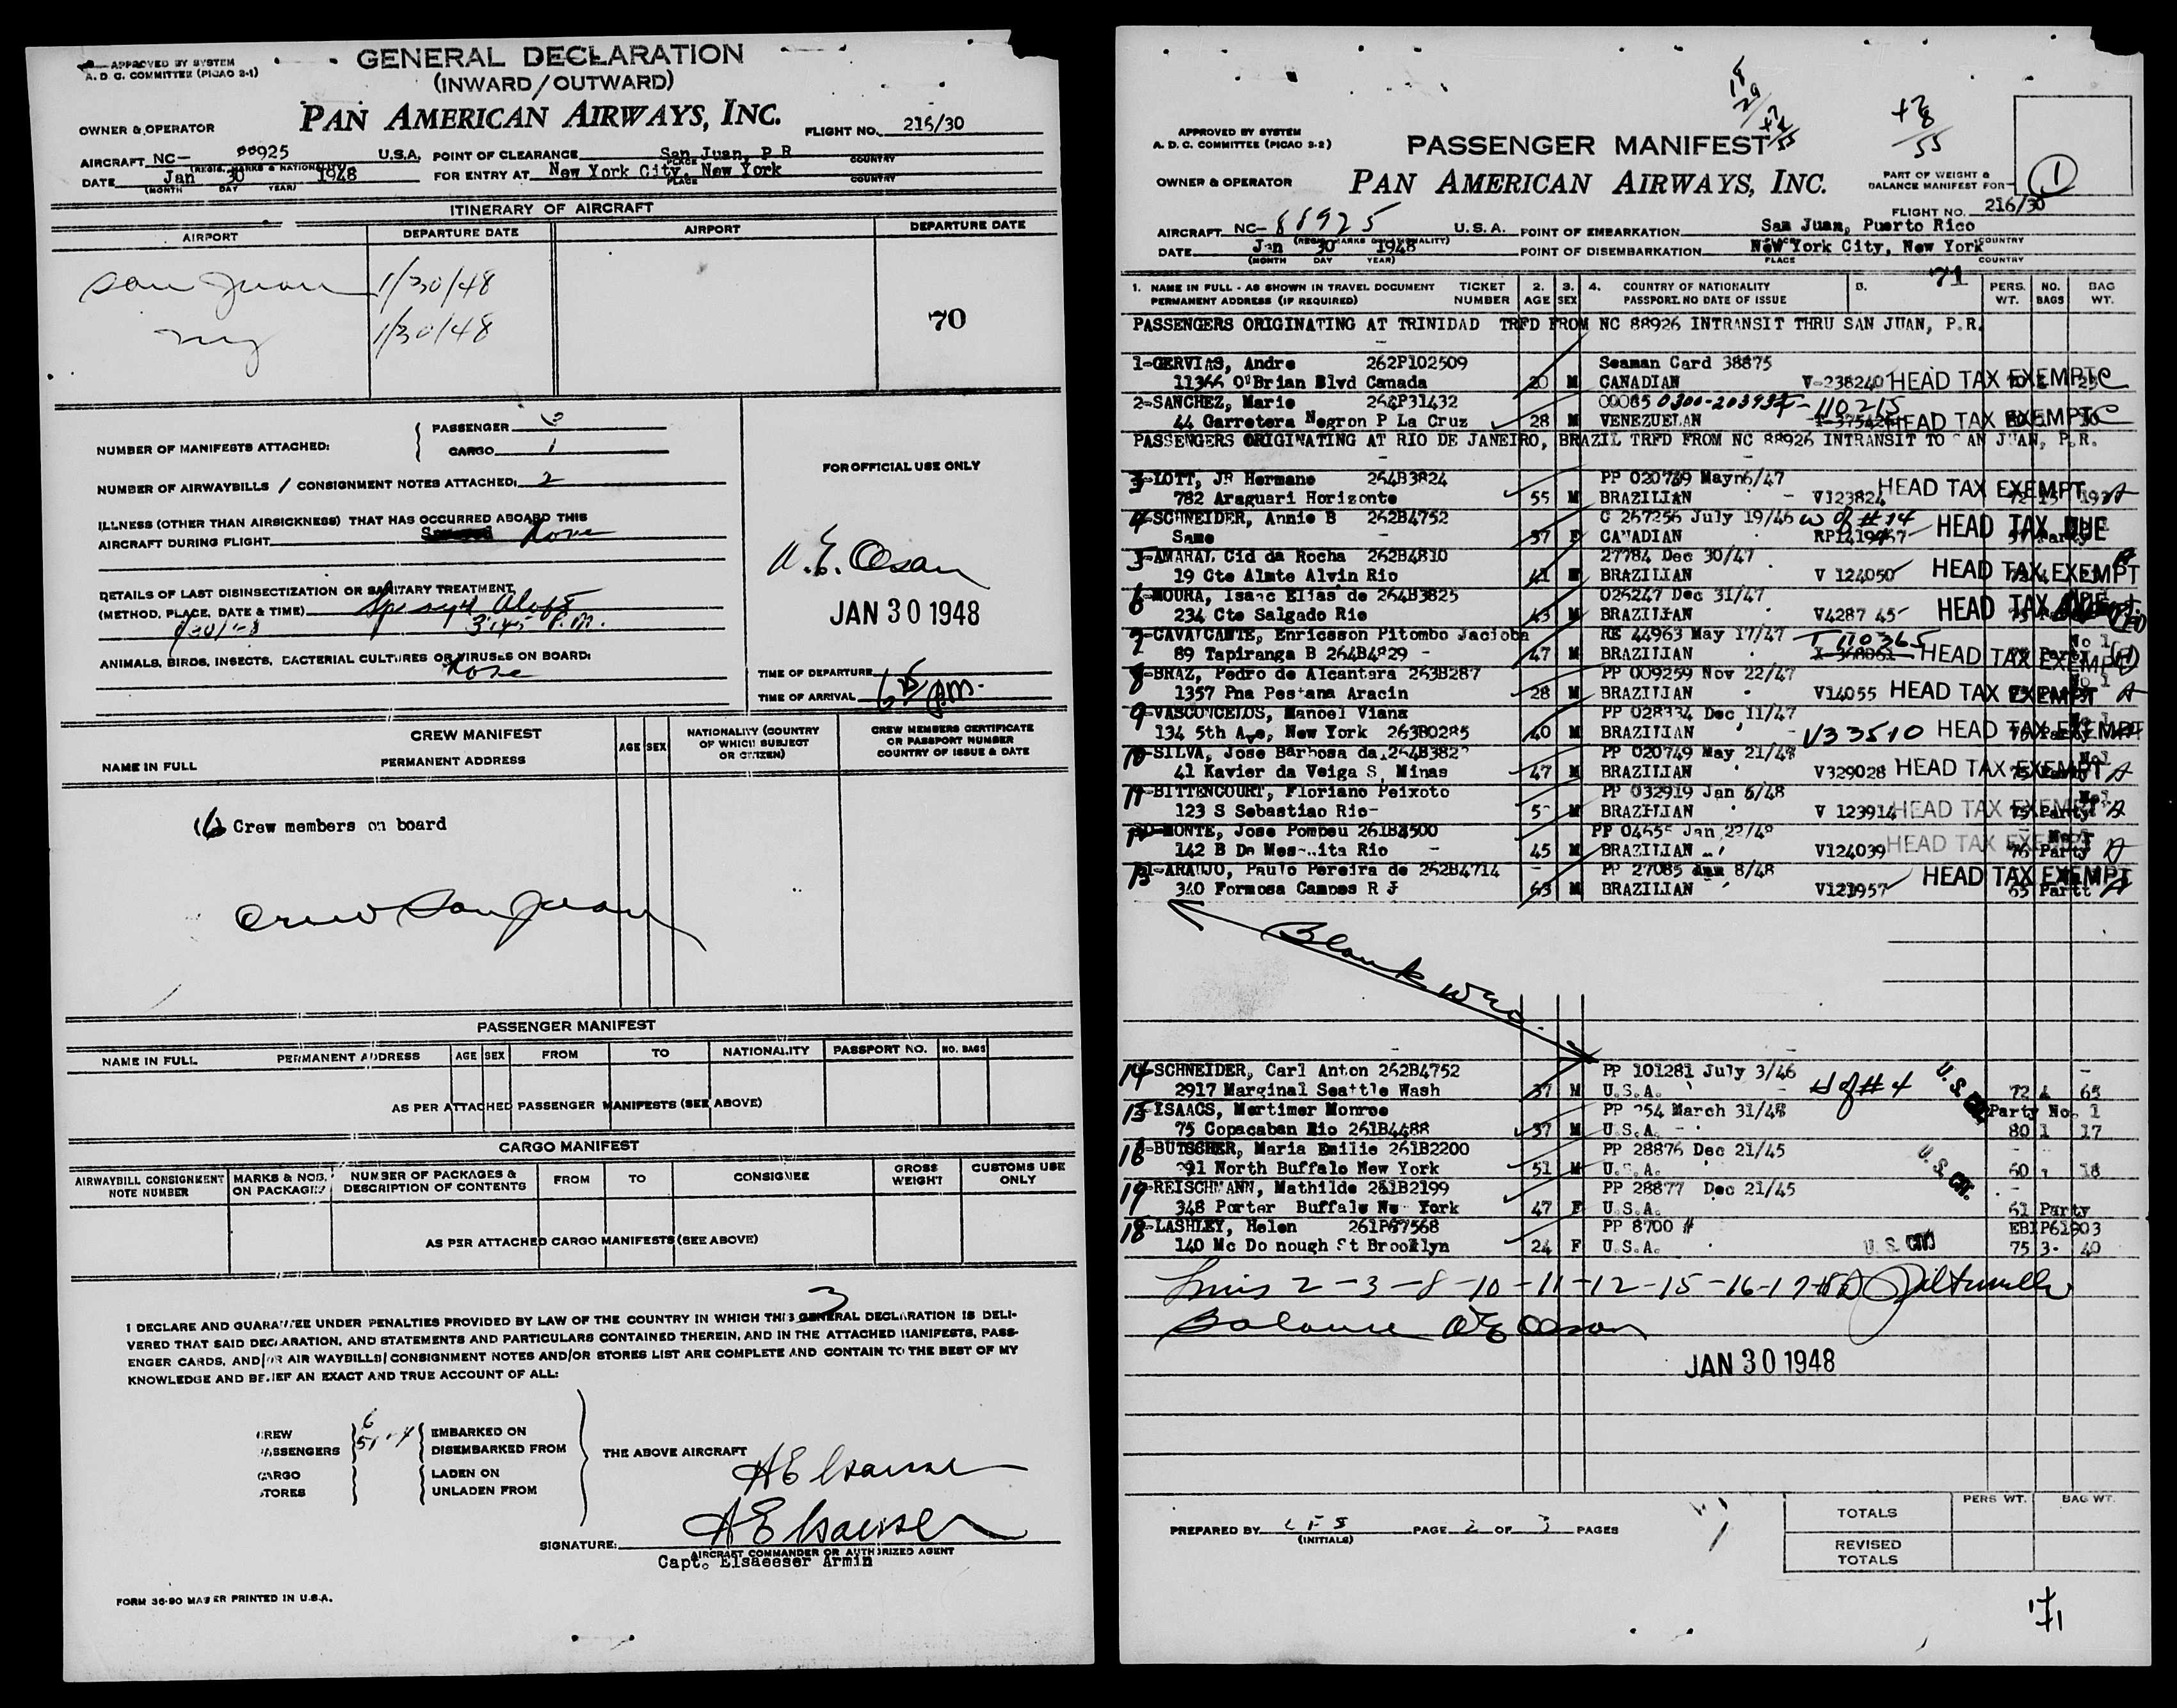 APPROVED BY SYSTEM
A. D. C. COMMITTEE (PICAO 2-1)
GENERAL DECLARATION
(INWARD/OUTWARD)
PAN AMERICAN AIRWAYS, INC.
OWNER & OPERATOR
FLIGHT NO. 216/30
AIRCRAFT NC- 88925 U.S.A.
(REGIS. MARKS & NATIONALITY)
POINT OF CLEARANCE San Juan, P R
PLACE COUNTRY
DATE Jan 30 1948
(MONTH DAY YEAR)
FOR ENTRY AT New York City, New York
PLACE COUNTRY
ITINERARY OF AIRCRAFT
AIRPORT DEPARTURE DATE AIRPORT DEPARTURE DATE
San Juan 1/30/48
NY 1/30/48
70
NUMBER OF MANIFESTS ATTACHED:
PASSENGER 3
CARGO 1
NUMBER OF AIRWAYBILLS / CONSIGNMENT NOTES ATTACHED: 2
ILLNESS (OTHER THAN AIRSICKNESS) THAT HAS OCCURRED ABOARD THIS
AIRCRAFT DURING FLIGHT None
DETAILS OF LAST DISINSECTIZATION OR SANITARY TREATMENT,
(METHOD, PLACE, DATE & TIME) Sprayed Aloft
3:45 P.M.
ANIMALS, BIRDS, INSECTS, BACTERIAL CULTURES OR VIRUSES ON BOARD:
None
FOR OFFICIAL USE ONLY
JAN 30 1948
TIME OF DEPARTURE
TIME OF ARRIVAL pm.
CREW MANIFEST
NAME IN FULL PERMANENT ADDRESS
AGE SEX
NATIONALITY (COUNTRY
OF WHICH SUBJECT
OR CITIZEN)
CREW MEMBERS CERTIFICATE
OR PASSPORT NUMBER
COUNTRY OF ISSUE & DATE
(6 Crew members on board
Crew San Juan
PASSENGER MANIFEST
NAME IN FULL PERMANENT ADDRESS AGE SEX FROM TO NATIONALITY PASSPORT NO. NO. BAGS
AS PER ATTACHED PASSENGER MANIFESTS (SEE ABOVE)
CARGO MANIFEST
AIRWAYBILL CONSIGNMENT
NOTE NUMBER
MARKS & NOS.
ON PACKAGES
NUMBER OF PACKAGES &
DESCRIPTION OF CONTENTS
FROM TO CONSIGNEE
GROSS
WEIGHT
CUSTOMS USE
ONLY
AS PER ATTACHED CARGO MANIFESTS (SEE ABOVE)
3
I DECLARE AND GUARANTEE UNDER PENALTIES PROVIDED BY LAW OF THE COUNTRY IN WHICH THIS GENERAL DECLARATION IS DELI-
VERED THAT SAID DECLARATION, AND STATEMENTS AND PARTICULARS CONTAINED THEREIN, AND IN THE ATTACHED MANIFESTS, PASS-
ENGER CARDS, AND/OR AIR WAYBILLS/CONSIGNMENT NOTES AND/OR STORES LIST ARE COMPLETE AND CONTAIN TO THE BEST OF MY
KNOWLEDGE AND BELIEF AN EXACT AND TRUE ACCOUNT OF ALL:
CREW 6 EMBARKED ON
PASSENGERS DISEMBARKED FROM
CARGO LADEN ON
STORES UNLADEN FROM
THE ABOVE AIRCRAFT
SIGNATURE:
AIRCRAFT COMMANDER OR AUTHORIZED AGENT
Capt. Elsaeeser Armin
FORM 36-90 PRINTED IN U.S.A.
APPROVED BY SYSTEM
A. D. C. COMMITTEE (PICAO 2-2)
PASSENGER MANIFEST
OWNER & OPERATOR
PAN AMERICAN AIRWAYS, INC.
PART OF WEIGHT &
BALANCE MANIFEST FOR
1
FLIGHT NO. 216/30
AIRCRAFT NC- 88925 U.S.A.
(REGIS. MARKS & NATIONALITY)
POINT OF EMBARKATION San Juan, Puerto Rico
PLACE COUNTRY
DATE Jan 30 1948
(MONTH DAY YEAR)
POINT OF DISEMBARKATION New York City, New York
PLACE COUNTRY
71
1. NAME IN FULL - AS SHOWN IN TRAVEL DOCUMENT
PERMANENT ADDRESS (IF REQUIRED)
TICKET
NUMBER
2.
AGE
3.
SEX
4. COUNTRY OF NATIONALITY
PASSPORT NO DATE OF ISSUE
5.
PERS.
WT.
NO.
BAGS
BAG
WT.
PASSENGERS ORIGINATING AT TRINIDAD TRFD FROM NC 88926 INTRANSIT THRU SAN JUAN, P.R.
1-GERVIAS, Andre 262P102509 Seaman Card 38875
11366 O'Brian Blvd Canada 20 M CANADIAN V-238240 HEAD TAX EXEMPT
2-SANCHEZ, Marie 264P31432 00085 0300-203937
44 Garretera Negron P La Cruz 28 M VENEZUELAN T-110215 HEAD TAX EXEMPT
PASSENGERS ORIGINATING AT RIO DE JANEIRO, BRAZIL TRFD FROM NC 88926 INTRANSIT TO SAN JUAN, P.R.
3-LOTT, JR Hermano 264B3824 PP 020789 May 6/47
782 Araguari Horizonte 55 M BRAZILIAN V123824 HEAD TAX EXEMPT
4-SCHNEIDER, Annie B 262B4752 C 267256 July 19/46 W of #14
Same 37 F CANADIAN HEAD TAX DUE
5-AMARAL Cid da Rocha 262B4810 27784 Dec 30/47
19 Cte Almte Alvin Rio 41 M BRAZILIAN V 124050 HEAD TAX EXEMPT
6-MOURA, Isaac Elias de 264B3825 026247 Dec 31/47
234 Cte Salgado Rio 43 M BRAZILIAN V4287 45 HEAD TAX
7-CAVALCANTE, Enricsson Pitombo Jacioba RE 44963 May 17/47 T 110365
89 Tapiranga B 264B4829 47 M BRAZILIAN HEAD TAX EXEMPT
8-BRAZ, Pedro de Alcantara 263B287 PP 009259 Nov 22/47
1357 Pna Pestana Aracin 28 M BRAZILIAN V14055 HEAD TAX EXEMPT
9-VASCONCELOS, Manoel Viana PP 028334 Dec 11/47
134 5th Ave, New York 263B0285 40 M BRAZILIAN V33510 HEAD TAX EXEMPT
10-SILVA, Jose Barbosa da PP 020749 May 21/47
41 Xavier da Veiga S, Minas 47 M BRAZILIAN V329028 HEAD TAX EXEMPT
11-BITTENCOURT, Floriano Peixoto PP 032919 Jan 6/48
123 S Sebastiao Rio- M BRAZILIAN V 123914 HEAD TAX EXEMPT
12-MONTE, Jose Pompeu 261B4500
142 B De Rio 45 M BRAZILIAN V124039 HEAD TAX EXEMPT
13-ARAUJO, Paulo Pereira de 262B4714 PP 27085 Jan 8/48
340 Formosa Campos R J 63 M BRAZILIAN V123957 HEAD TAX EXEMPT
Blank
14-SCHNEIDER, Carl Anton 262B4752 PP 101281 July 3/46
2917 Marginal Seattle Wash 37 M U.S.A. H of #4 U.S. Cit. 72 4 65
15-ISAACS, Mortimer Monroe PP 254 March 31/48 Party No. 1
75 Copacaban Rio 261B4488 37 M U.S.A. 80 1 17
16-BUTSCHER, Maria Emilie 261B2200 PP 28876 Dec 21/45
291 North Buffalo New York 51 M U.S.A. 60 1 18
U.S. Cit.
17-REISCHMANN, Mathilde 261B2199 PP 28877 Dec 21/45
348 Porter Buffalo New York 47 F U.S.A. 61 Party
18-LASHLEY, Helen 261P67568 PP 8700 # EBIP61803
140 Mc Do nough St Brooklyn 24 F U.S.A. U.S. Cit 75 3 40
2-3-8-10-11-12-15-16-17-18
Balance
JAN 30 1948
PREPARED BY LFS
(INITIALS)
PAGE 2 OF 3 PAGES
PERS WT. BAG WT.
TOTALS
REVISED
TOTALS